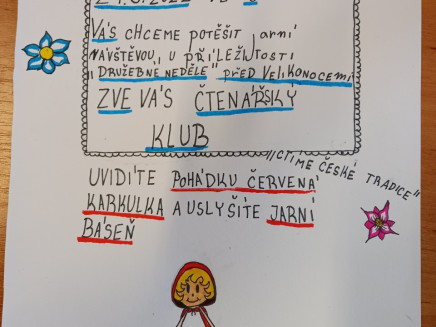 VÁS CHCEME POTĚŠIT jarní
NÁVŠTĚVOU, U PŘÍLEŽITOSTI
"DRUŽEBNÉ NEDĚLE" PŘED VELIKONOCEMI
ZVE VÁS ČTENÁŘSKÝ
KLUB
"CTÍME ČESKÉ TRADICE"
UVIDÍTE POHÁDKU ČERVENÁ
KARKULKA A USLYŠÍTE JARNÍ
BÁSEŇ